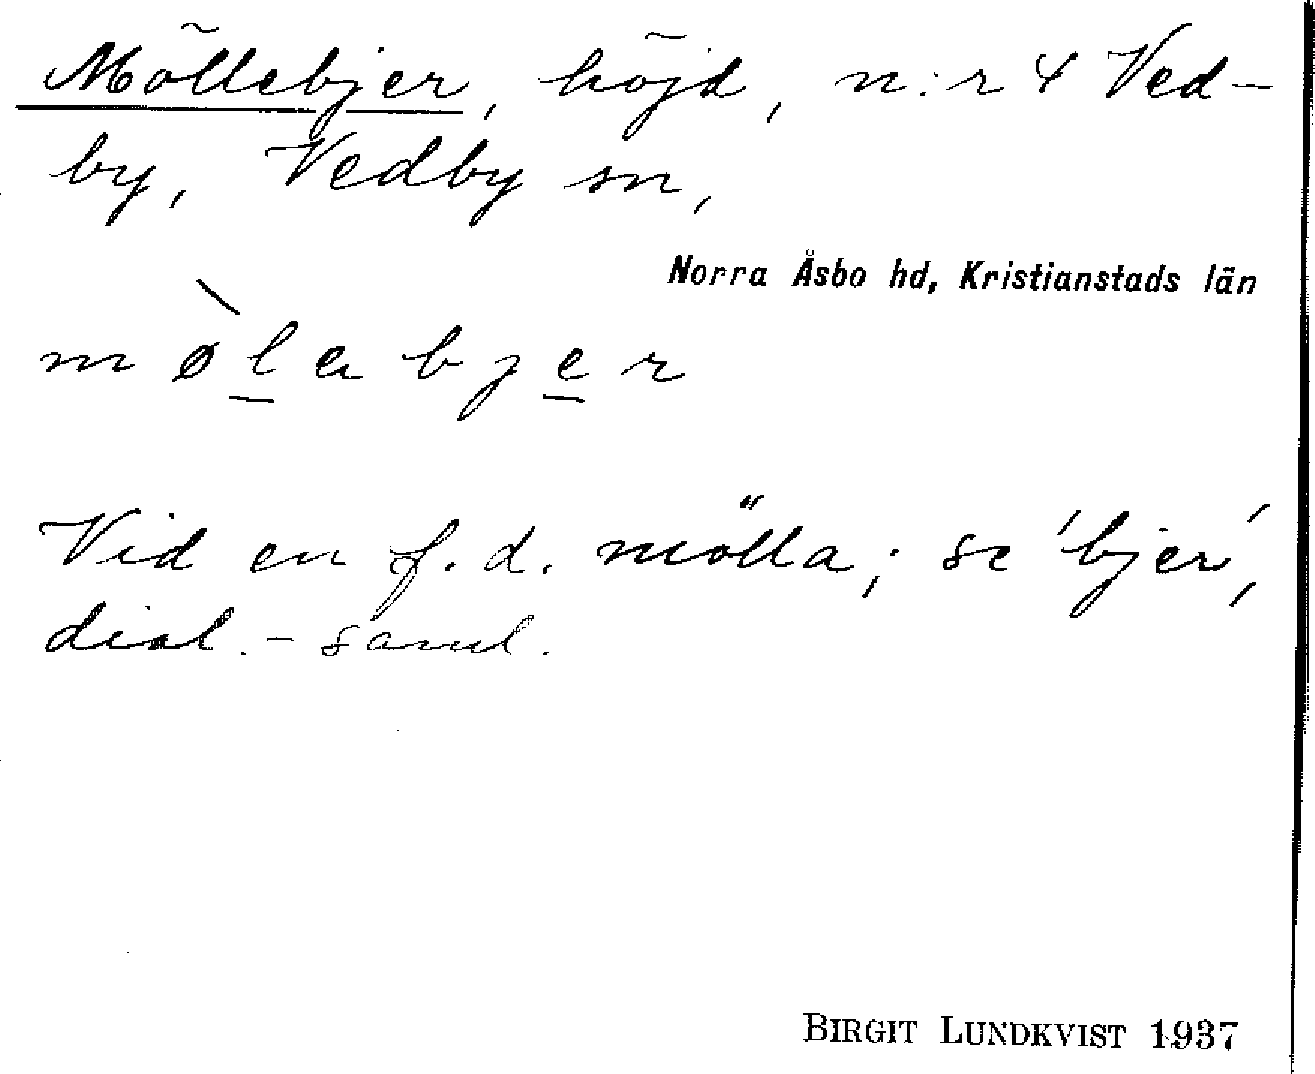 Möllebjer, höjd, n:r 4 Ved-
by, Vedby sn,
Norra Åsbo hd, Kristianstads län
mø̀l̲ebje̲r
Vid en f.d. mölla; se 'bjer',
dial.-saml.
BIRGIT LUNDKVIST 1937